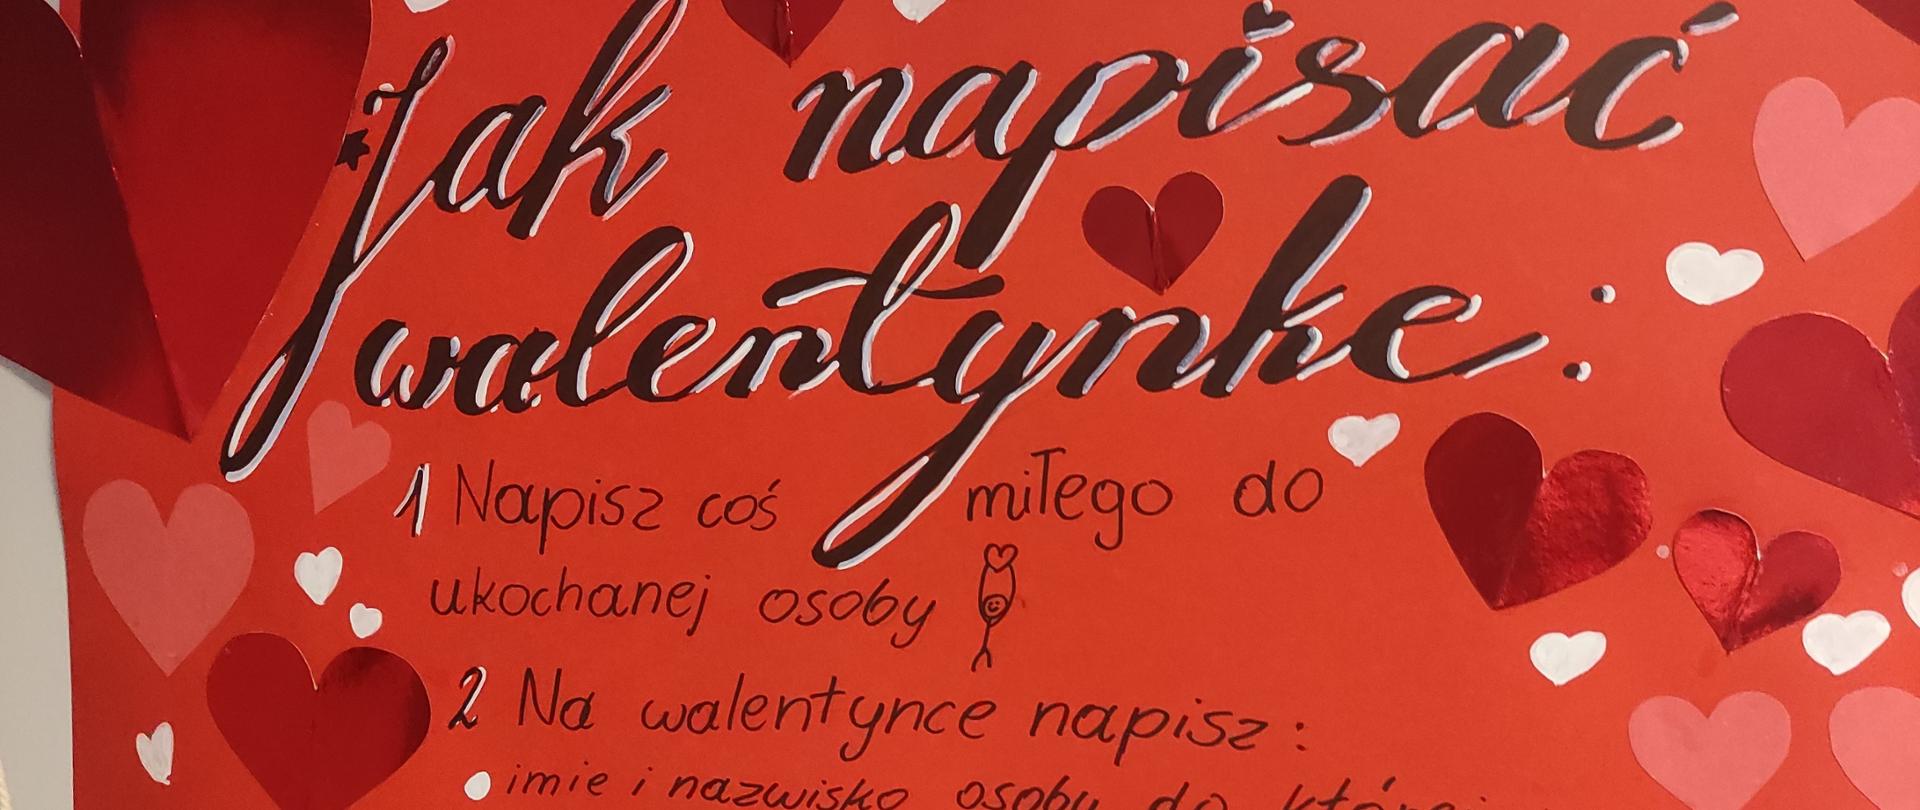 Jak napisać
walentynkę:
1 Napisz coś miłego do
ukochanej osoby
2 Na walentynce napisz:
imie i nazwisko osoby do której